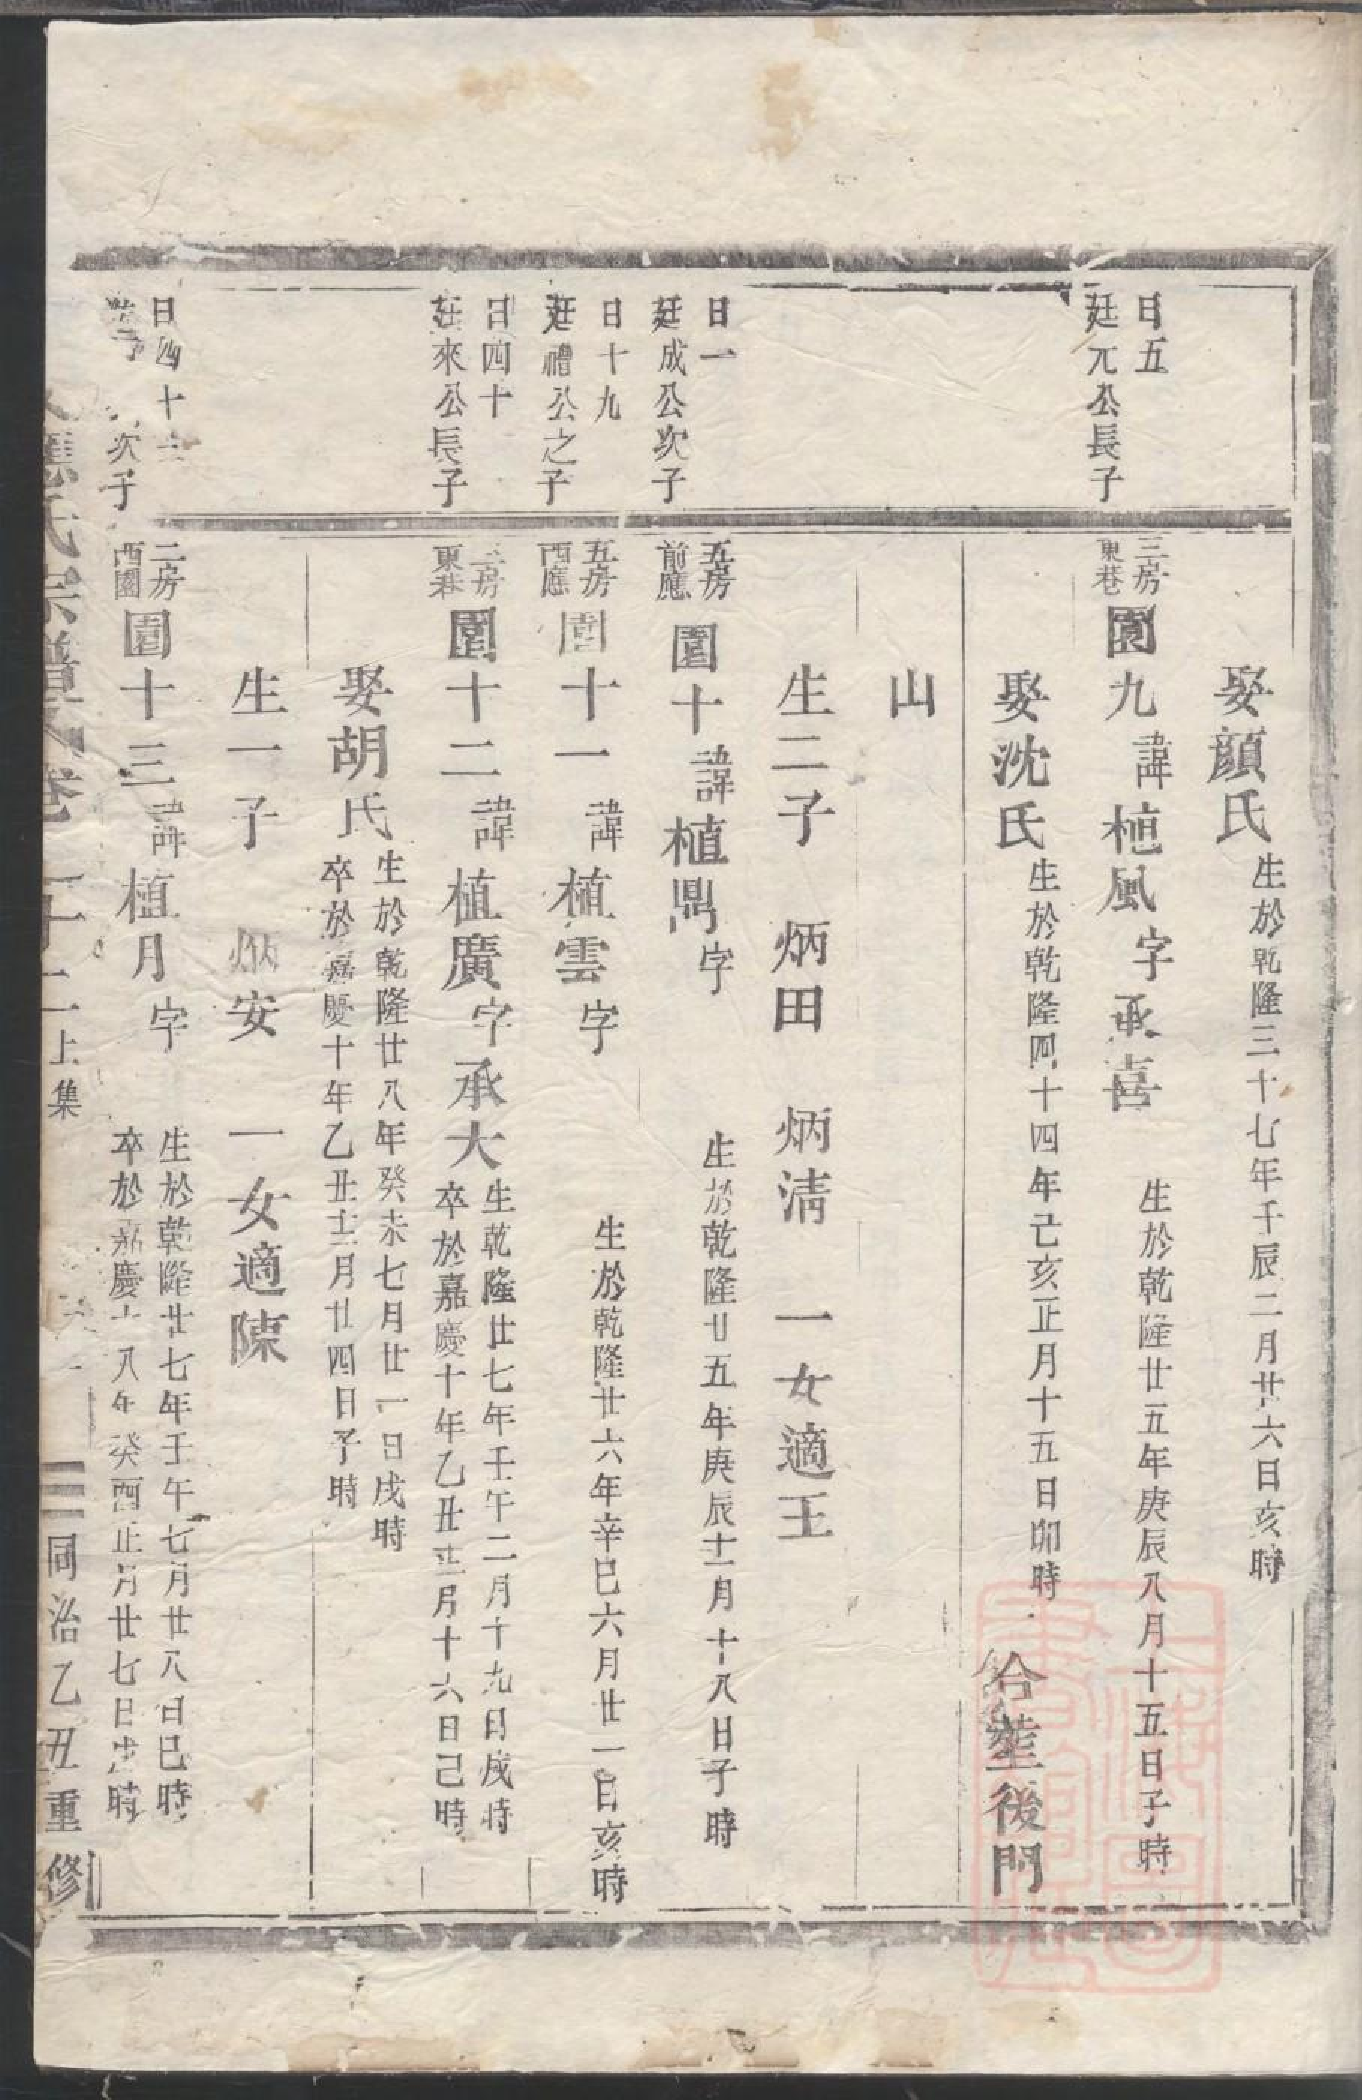 娶顏氏生於乾隆三十七年壬辰二月廿六日亥時
日五
廷元公長子
三房
東巷
園九諱植風字承喜 生於乾隆廿五年庚辰八月十五日子時
娶沈氏生於乾隆四十四年己亥正月十五日卯時 合塟後門
山
生二子 炳田 炳淸 一女適王
日一
廷成公次子
五房
前應
園十諱植鼎字 生於乾隆廿五年庚辰十一月十八日子時
日十九
廷禮公之子
五房
西應
園十一諱植雲字 生於乾隆廿六年辛巳六月廿一日亥時
日四十
廷來公長子
三房
東巷
園十二諱植廣字承大
生乾隆廿七年壬午二月十九日戌時
卒於嘉慶十年乙丑十二月十六日己時
娶胡氏
生於乾隆廿八年癸未七月廿一日戌時
卒於嘉慶十年乙丑十二月廿四日子時
生一子 炳安 一女適陳
日四十
次子
二房
西園
園十三諱植月字
生於乾隆廿七年壬午七月廿八日巳時
卒於嘉慶十八年癸酉正月廿七日戌時
應氏宗譜卷二十二上集 同治乙丑重修